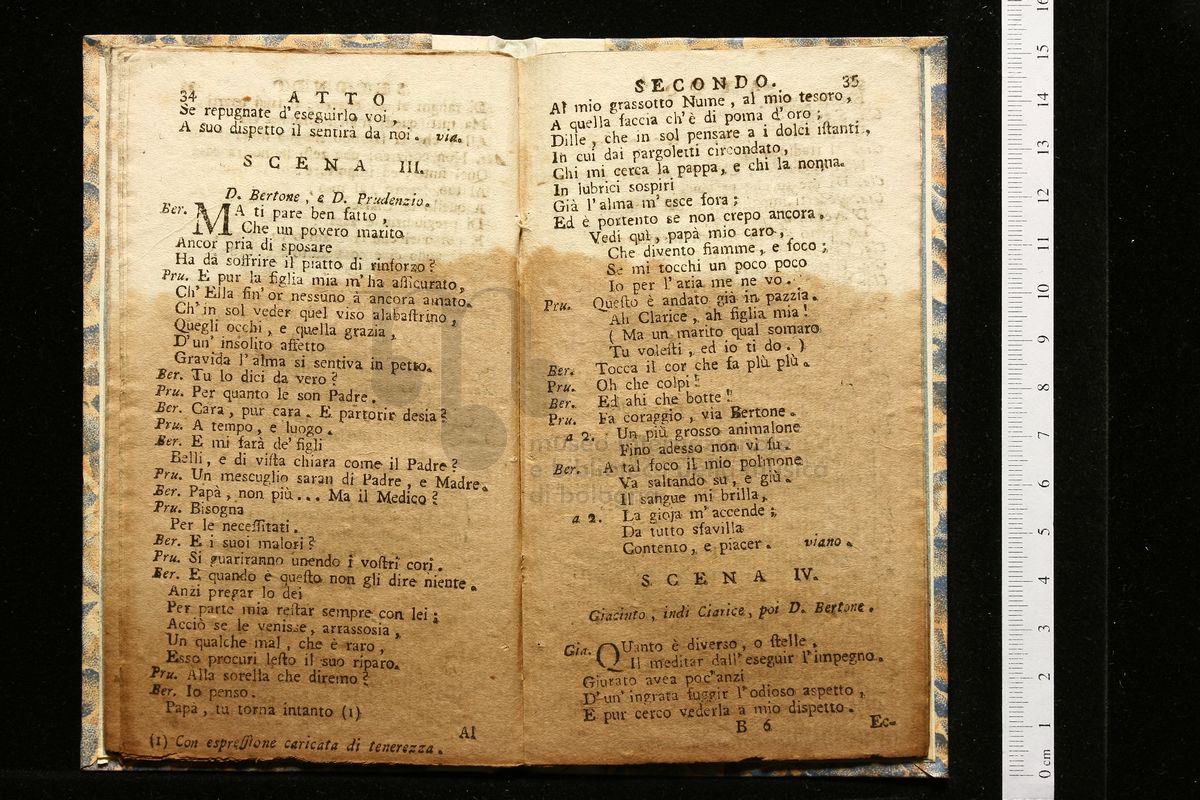 34 ATTO
Se repugnate d'eseguirlo voi,
A suo dispetto il sentirà da noi. via.
SCENA III.
D. Bertone, e D. Prudenzio.
Ber. MA ti pare ben fatto,
Che un povero marito
Ancor pria di sposare
Ha da soffrire il piatto di rinforzo?
Pru. E pur la figlia mia m'ha assicurato,
Ch'Ella fin'or nessuno à ancora amato.
Ch'in sol veder quel viso alabastrino,
Quegli occhi, e quella grazia,
D'un'insolito affetto
Gravida l'alma si sentiva in petto.
Ber. Tu lo dici da vero?
Pru. Per quanto le son Padre.
Ber. Cara, pur cara. E partorir desia?
Pru. A tempo, e luogo.
Ber. E mi farà de'figli
Belli, e di vista chiara come il Padre?
Pru. Un mescuglio saran di Padre, e Madre.
Ber. Papà, non più... Ma il Medico?
Pru. Bisogna
Per le necessitati.
Ber. E i suoi malori?
Pru. Si guariranno unendo i vostri cori.
Ber. E quando è questo non gli dire niente.
Anzi pregar lo dei
Per parte mia restar sempre con lei;
Acciò se le venisse, arrassosia,
Un qualche mal, che è raro,
Esso procuri lesto il suo riparo.
Pru. Alla sorella che diremo?
Ber. Io penso.
Papà, tu torna intanto (1)
Al
(1) Con espressione caricata di tenerezza.
SECONDO. 35
Al mio grassotto Nume, al mio tesoro,
A quella faccia ch'è di poma d'oro;
Dille, che in sol pensare a i dolci istanti,
In cui dai pargoletti circondato,
Chi mi cerca la pappa, e chi la nonna.
In lubrici sospiri
Già l'alma m'esce fora;
Ed è portento se non crepo ancora.
Vedi quì, papà mio caro,
Che divento fiamme, e foco;
Se mi tocchi un poco poco
Io per l'aria me ne vo.
Pru. Questo è andato già in pazzia.
Ah Clarice, ah figlia mia!
(Ma un marito qual somaro
Tu volesti, ed io ti do.)
Ber. Tocca il cor che fa plù plù.
Pru. Oh che colpi!
Ber. Ed ahi che botte!
Pru. Fa coraggio, via Bertone.
a 2. Un più grosso animalone
Fino adesso non vi fu.
Ber. A tal foco il mio polmone
Va saltando su, e giù.
Il sangue mi brilla,
a 2. La gioja m'accende;
Da tutto sfavilla
Contento, e piacer. viano.
SCENA IV.
Giacinto, indi Clarice, poi D. Bertone.
Gia. QUanto è diverso, o stelle,
Il meditar dall'eseguir l'impegno.
Giurato avea poc'anzi
D'un'ingrata fuggir l'odioso aspetto,
E pur cerco vederla a mio dispetto.
B 6 Ec-